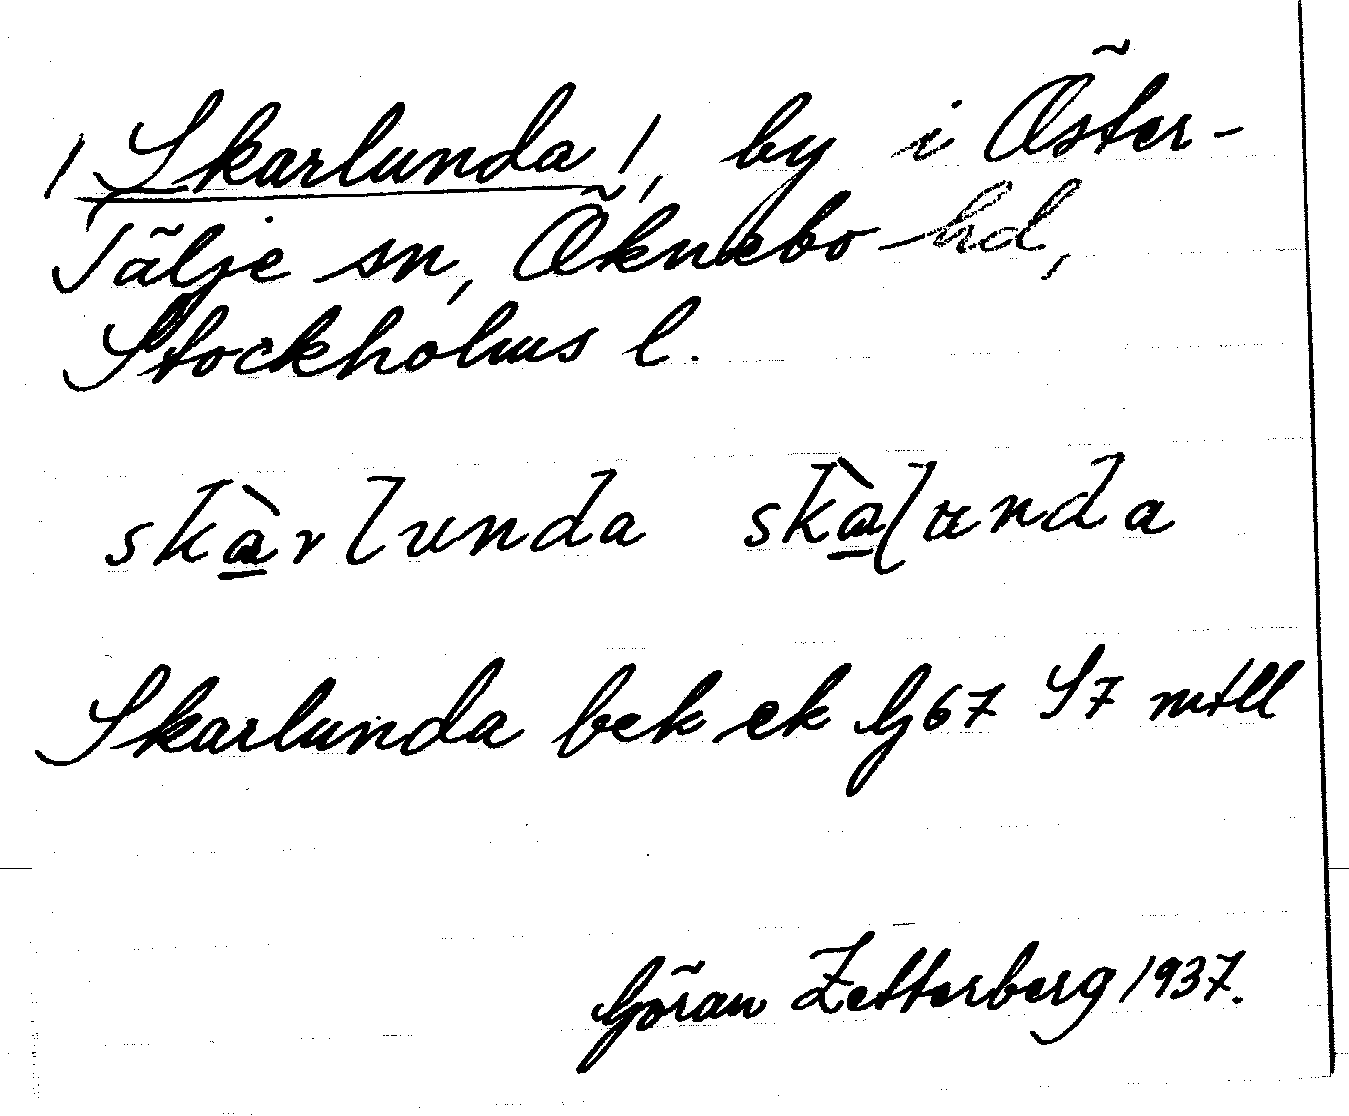 /Skarlunda/, by i Öster-
Tälje sn, Öknebo hd,
Stockholms l.
skàrlunda skàlunda
Skarlunda bek ek G67 S7 mtll
Göran Zetterberg 1937.